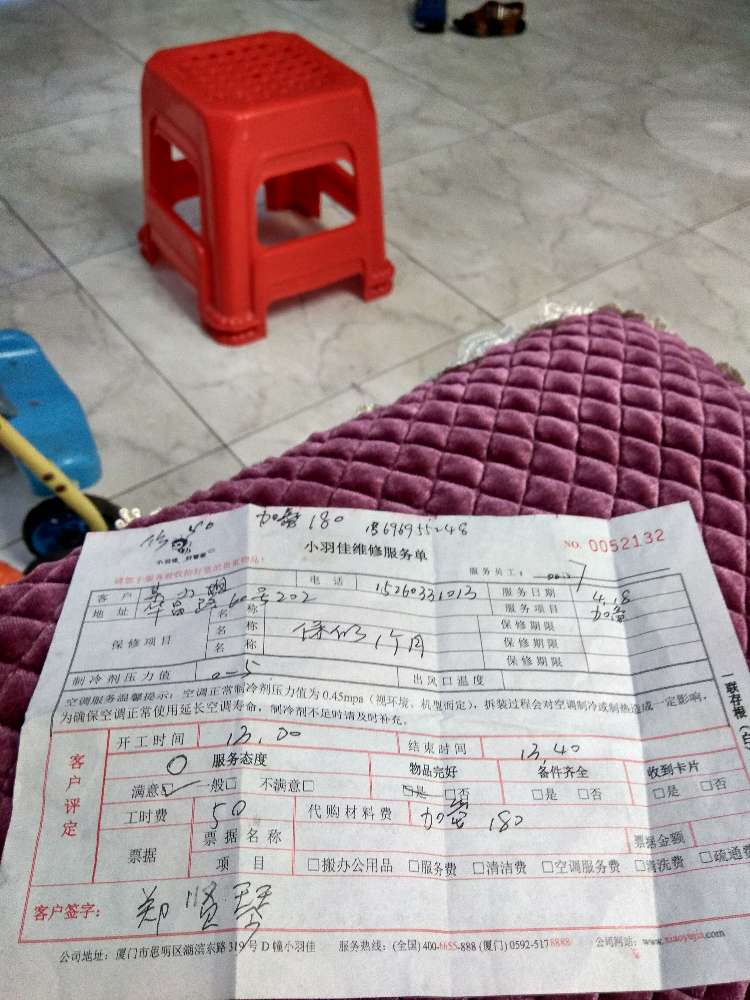 加氟 180 13696955248
小羽佳维修服务单 NO. 0052132
小羽佳 好管家
服务员工:
客户 电话 15260331013 服务日期 4.18
地址 华昌路60号202 名称 服务项目 加氟
保修项目 名称 保修1个月 保修期限
名称 保修期限
保修期限
制冷剂压力值 0-5 出风口温度
空调服务温馨提示:空调正常制冷剂压力值为0.45mpa(视环境、机型而定),拆装过程会对空调制冷或制热造成一定影响,
为确保空调正常使用延长空调寿命,制冷剂不足时请及时补充。
一联存根(白
客户评定
开工时间 13.00 结束时间 13.40
服务态度 物品完好 备件齐全 收到卡片
满意☑ 一般□ 不满意□ □是 □否 □是 □否 □是 □否
工时费 50 代购材料费 加氟 180
票据 票据名称 票据金额
项目 □搬办公用品 □服务费 □清洁费 □空调服务费 □清洗费 □疏通费
客户签字: 郑贤琴
公司地址:厦门市思明区湖滨东路319号D幢小羽佳 服务热线:(全国)400-6655-888 (厦门) 0592-5178888 公司网站:www.xiaoyujia.com